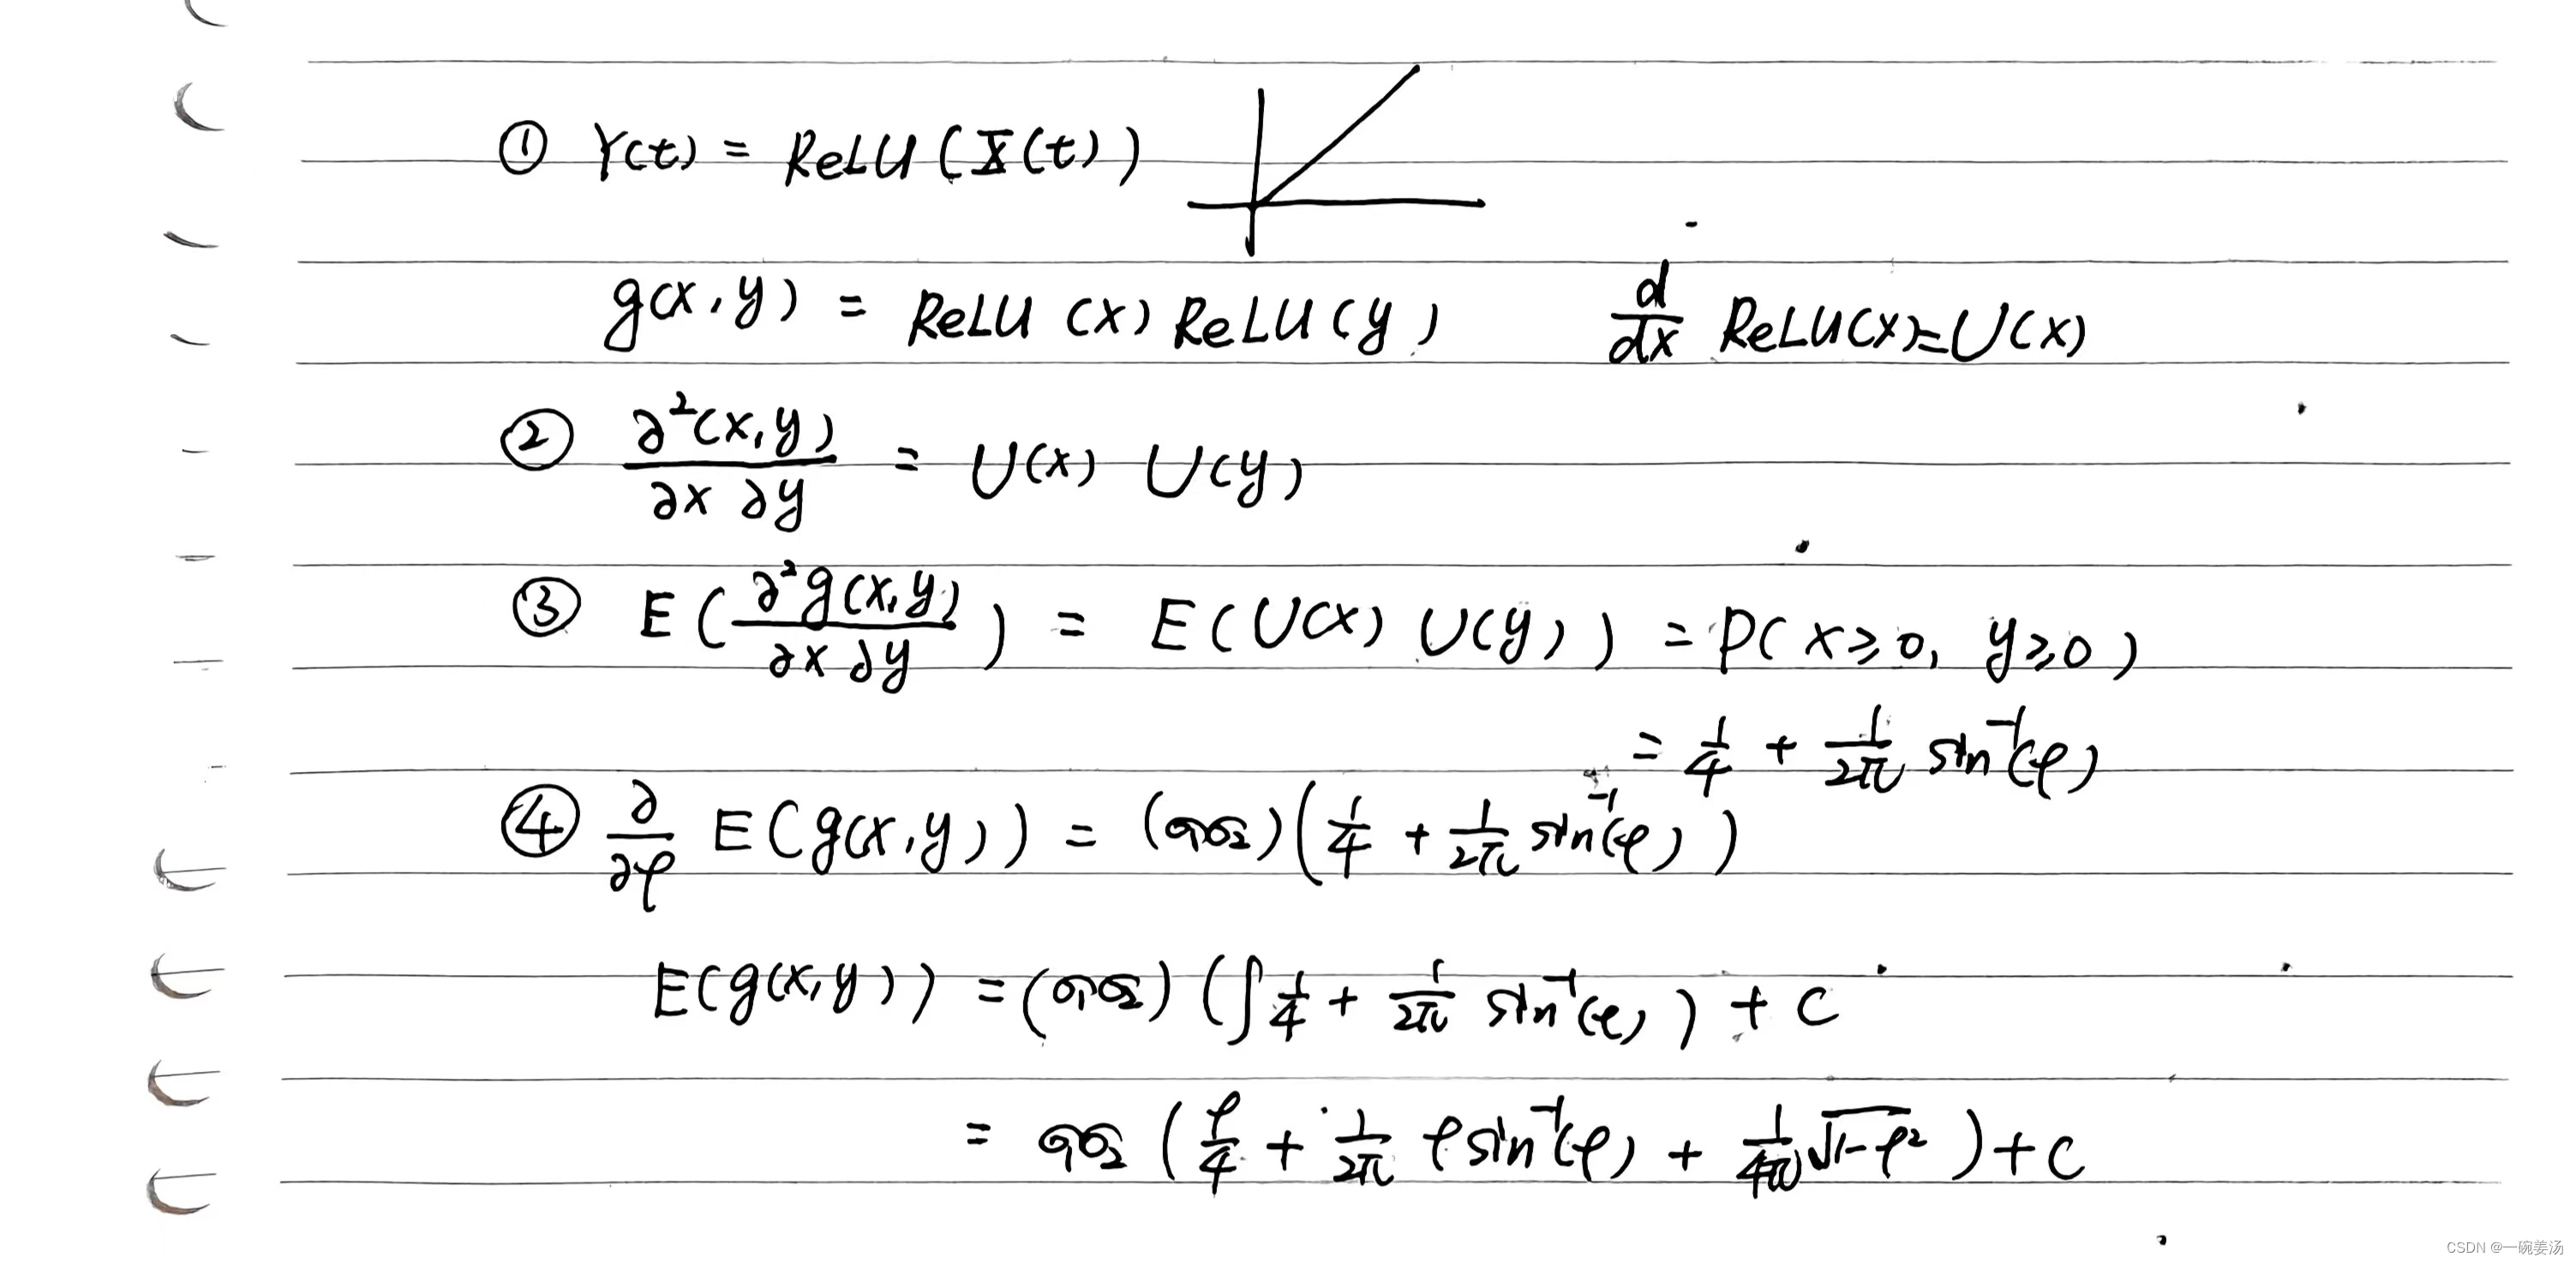 ① Y(t) = ReLU(X(t))
g(x,y) = ReLU(x) ReLU(y) d/dx ReLU(x) = U(x)
② ∂²(x,y)/∂x∂y = U(x) U(y)
③ E(∂²g(x,y)/∂x∂y) = E(U(x) U(y)) = P(x≥0, y≥0)
= 1/4 + 1/2π sin⁻¹(ρ)
④ ∂/∂ρ E(g(x,y)) = (σ₁σ₂)(1/4 + 1/2π sin⁻¹(ρ))
E(g(x,y)) = (σ₁σ₂)(∫ 1/4 + 1/2π sin⁻¹(ρ)) + C
= σ₁σ₂(ρ/4 + 1/2π ρ sin⁻¹(ρ) + 1/4π √(1-ρ²)) + C
CSDN @一碗姜汤